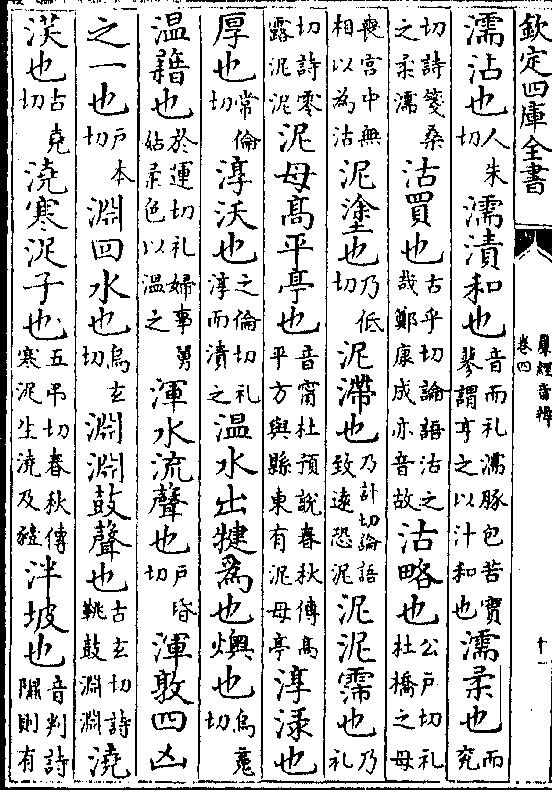 欽定四庫全書
羣經音辨
卷四
十一
濡沾也人朱切濡漬和也音而礼濡豚包苦實蓼謂亨之以汁和也濡柔也而兖
切詩箋桑之柔濡沽買也古乎切論語沽之哉鄭康成亦音故沽略也公戶切礼杜橋之母
喪宮中無相以為沽泥塗也乃低切泥滯也乃計切論語致遠恐泥泥泥濡也乃礼
切詩零露泥泥泥母高平亭也音甯杜預說春秋傳高平方與縣東有泥母亭淳渌也
厚也常倫切淳沃也之倫切礼淳而漬之温水出犍為也燠也烏䰟切
温藉也於運切礼婦事舅姑柔色以温之渾水流聲也戶昏切渾敦四凶
之一也戶本切淵回水也烏玄切淵淵鼓聲也古玄切詩鼗鼓淵淵澆
也古堯切澆寒浞子也五弔切春秋傳寒浞生澆及豷泮坡也音判詩隰則有